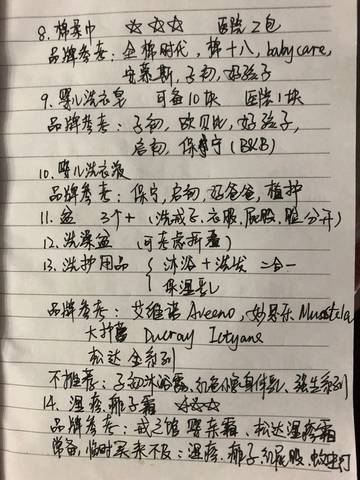 8. 棉柔巾 ☆☆☆ 医院2包
品牌参考：全棉时代，棉十八，babycare，
安慕斯，子初，好孩子
9. 婴儿洗衣皂 可备10块 医院1块
品牌参考：子初，欧贝比，好孩子，
启初，保宁（B&B）
10. 婴儿洗衣液
品牌参考：保宁，启初，好爸爸，植护
11. 盆 3个+（洗戒子、衣服、屁股、脸分开）
12. 洗澡盆（可考虑折叠）
13. 洗护用品 { 沐浴+洗发 二合一
保湿乳
品牌参考：艾维诺 Aveeno，妙思乐 Mustela
Ducray Ictyane
松达全系列
不推荐：子初沐浴露，红色小象身体乳，强生系列
14. 湿疹、痱子霜 ☆☆☆
品牌参考：戒之馆 婴亲霜、松达湿疹霜
常备，临时买来不及：湿疹、痱子、红屁股、蚊虫叮